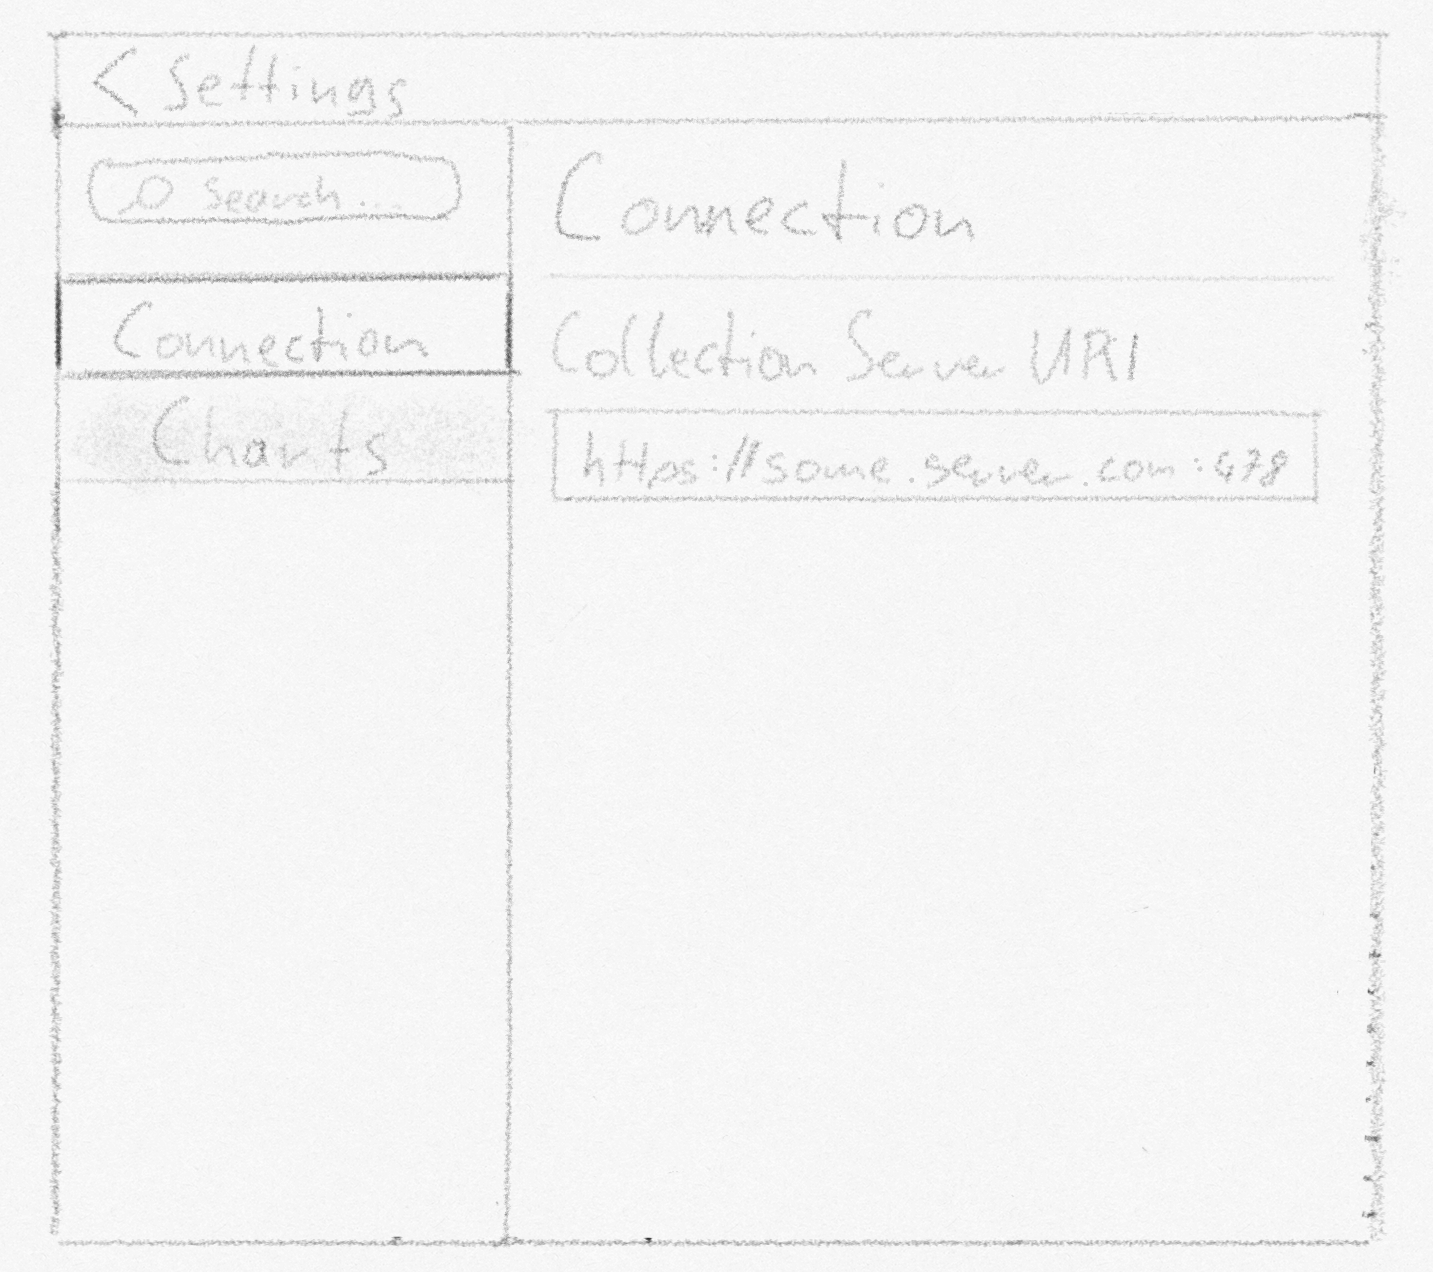 < Settings
Search...
Connection
Charts
Connection
Collection Server URI
https://some.server.com:478